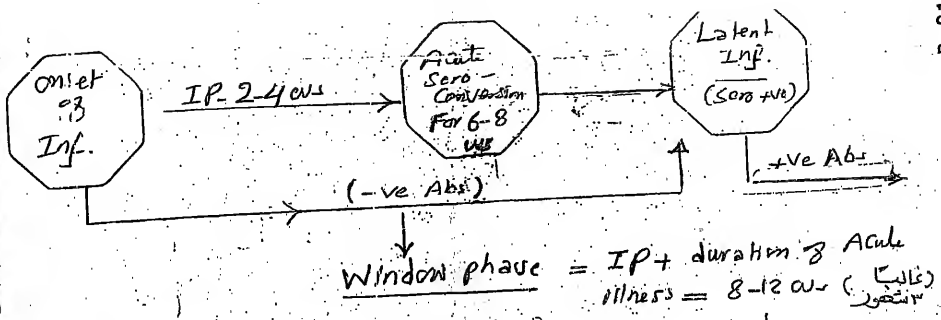 onset
of
Inf.
IP- 2-4 ws
Acute
Sero-
Conversion
For 6-8
ws
Latent
Inf.
(Sero +ve)
(-ve Abs)
+ve Abs
Window phase = IP + duration of Acute
illness = 8-12 ws (غالباً
٣ شهور)